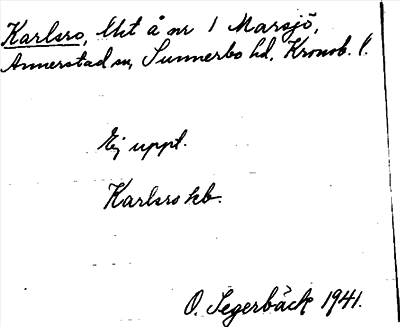 Karlsro, lht å nr 1 Marsjö,
Annerstad sn, Sunnerbo hd, Kronob. l.
Ej uppt.
Karlsro kb.
O. Segerbäck 1941.